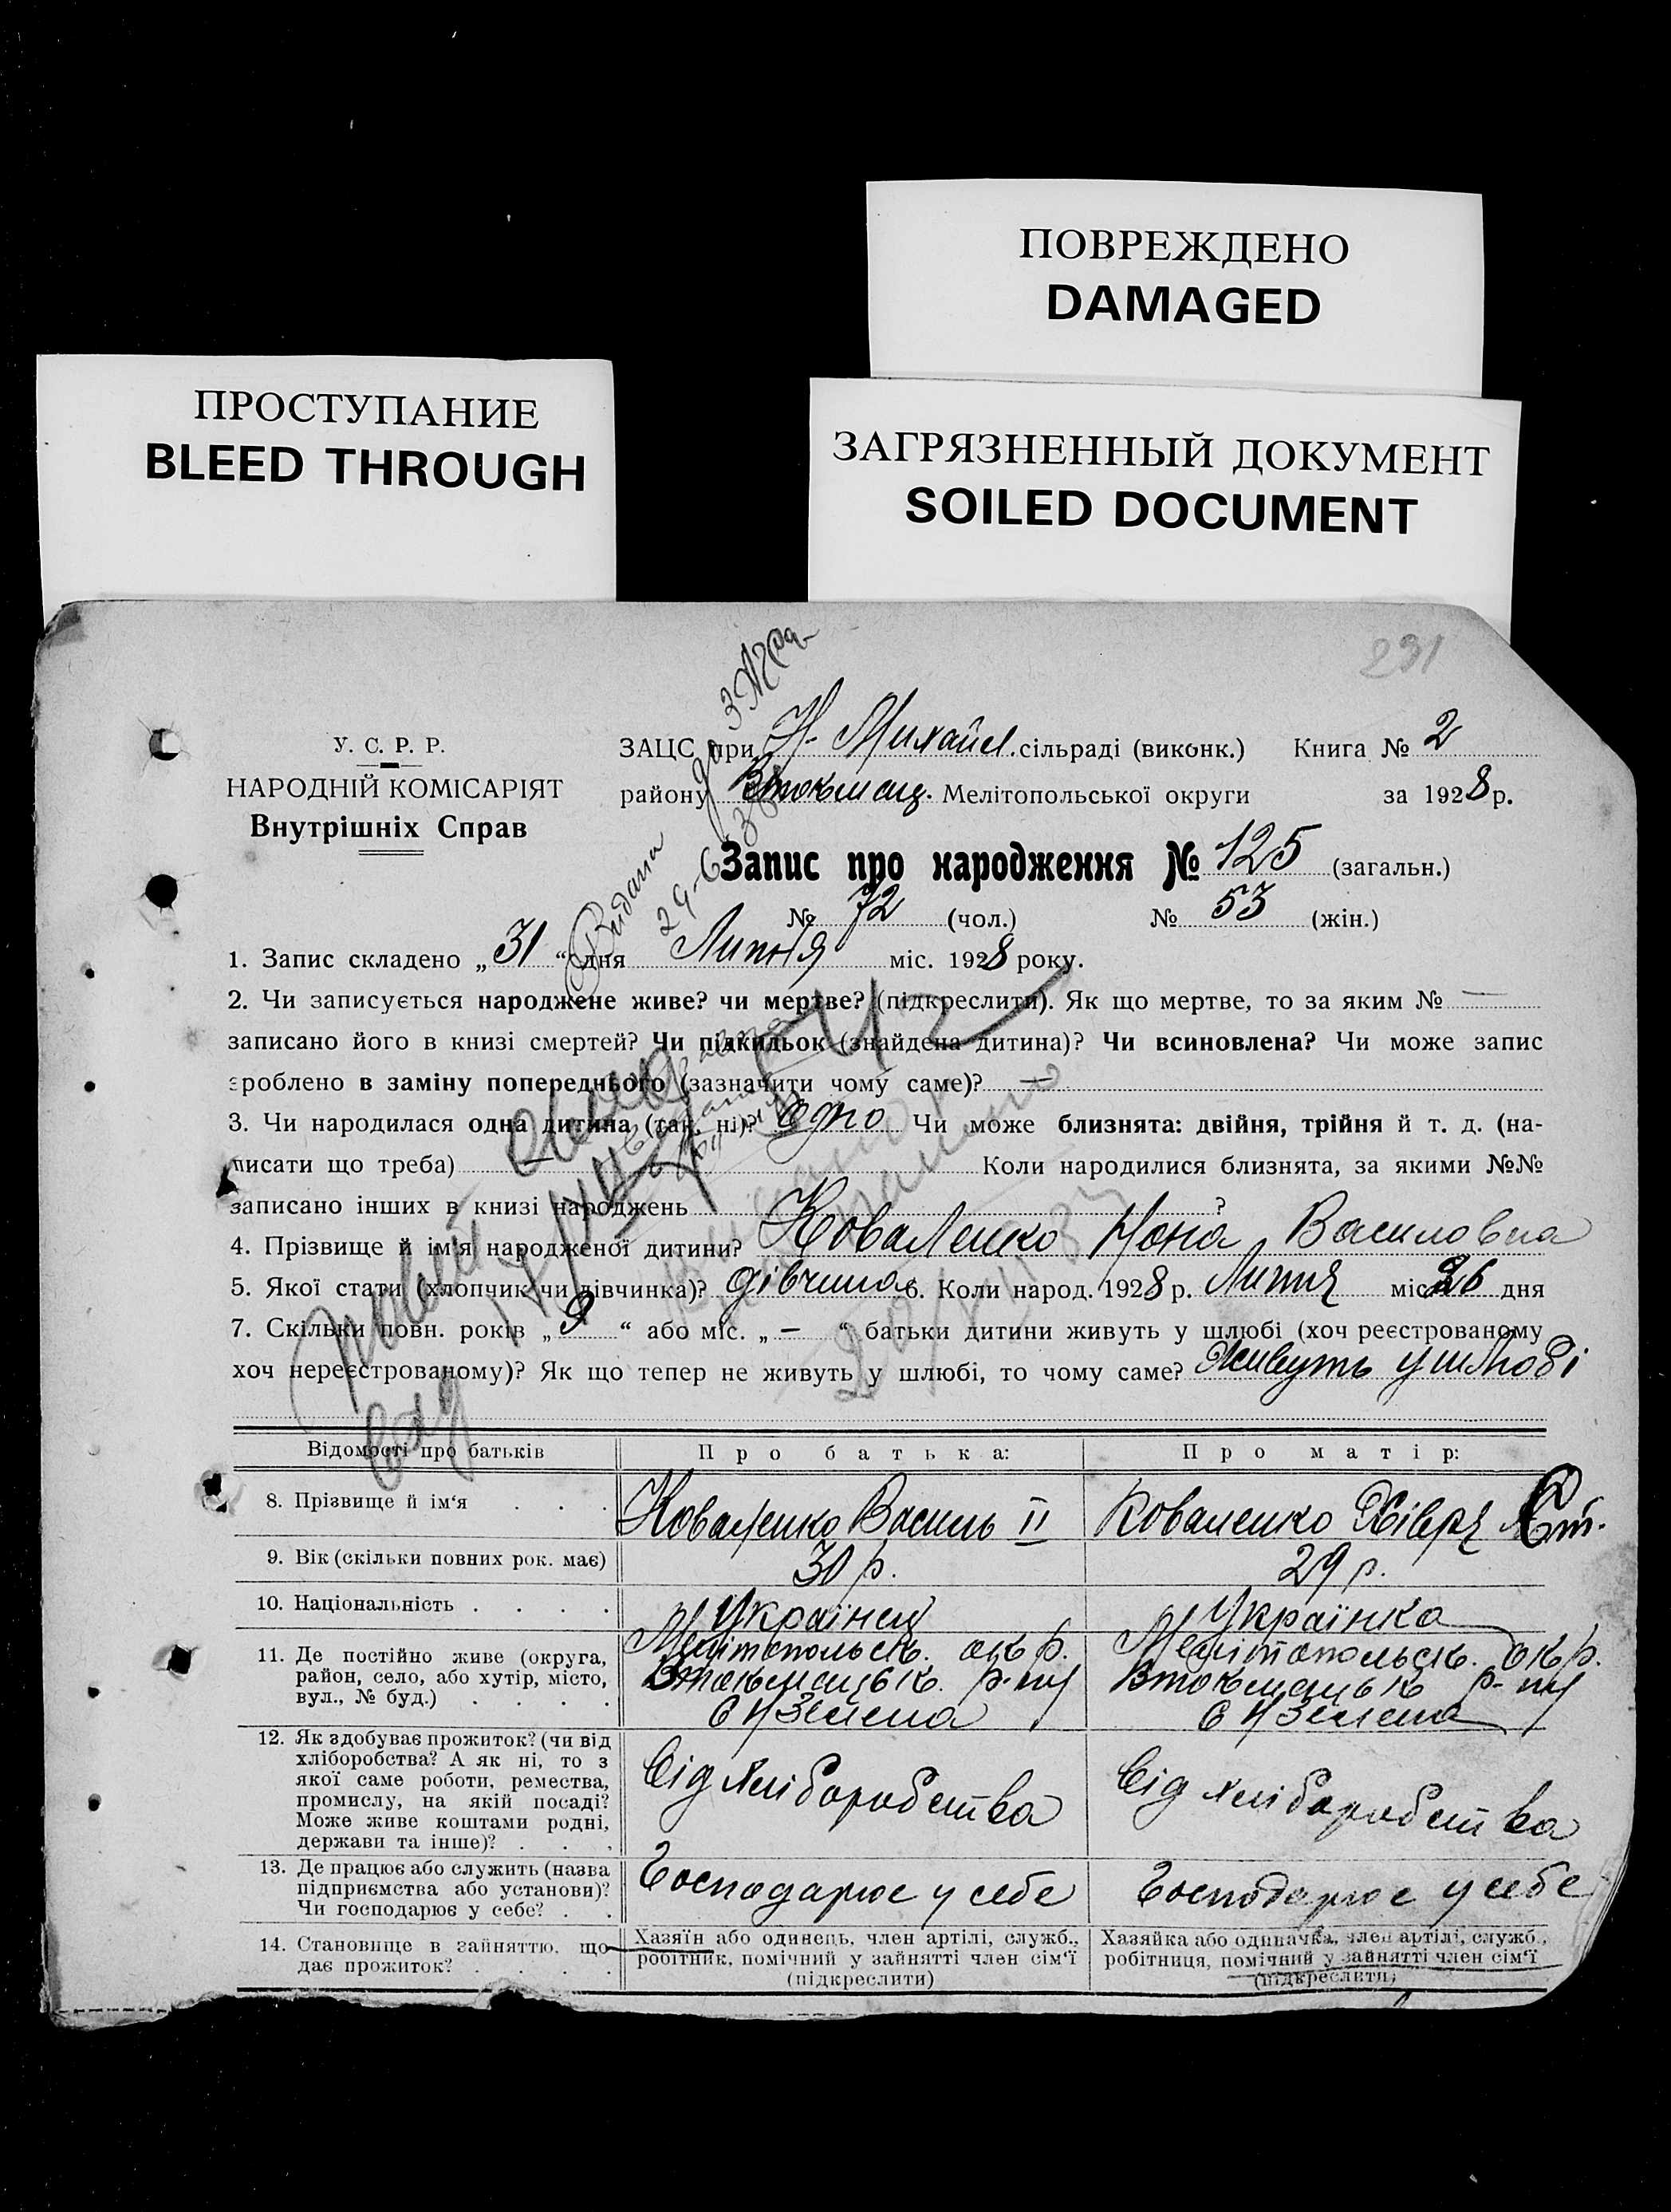 ПОВРЕЖДЕНО
DAMAGED
ПРОСТУПАНИЕ
BLEED THROUGH
ЗАГРЯЗНЕННЫЙ ДОКУМЕНТ
SOILED DOCUMENT
231
У. С. Р. Р.
НАРОДНІЙ КОМІСАРІЯТ
Внутрішніх Справ
ЗАЦС при Н. Михайл. сільраді (виконк.) Книга № 2
району Втокмац. Мелітопольської округи за 1928 р.
Видана
29-6-38
Запис про народження № 125 (загальн.)
№ 72 (чол.) № 53 (жін.)
1. Запис складено „ 31 “ дня Липня міс. 1928 року.
2. Чи записується народжене живе? чи мертве? (підкреслити). Як що мертве, то за яким № —
записано його в книзі смертей? Чи підкидьок (знайдена дитина)? Чи всиновлена? Чи може запис
зроблено в заміну попереднього (зазначити чому саме)? —
3. Чи народилася одна дитина (так, ні)? Одно Чи може близнята: двійня, трійня й т. д. (на-
писати що треба) — Коли народилися близнята, за якими №№
записано інших в книзі народжень ?
4. Прізвище й ім'я народженої дитини? Коваленко Нона Василовна
5. Якої стати (хлопчик чи дівчинка)? дівчина 6. Коли народ. 1928 р. Липня міс. 26 дня
7. Скільки повн. років „ 9 “ або міс. „ — “ батьки дитини живуть у шлюбі (хоч реєстрованому
хоч нереєстрованому)? Як що тепер не живуть у шлюбі, то чому саме? Живуть у шлюбі
Відомості про батьків Про батька: Про матір:
8. Прізвище й ім‘я . . . Коваленко Василь II Коваленко Хівря
9. Вік (скільки повних рок. має) 30 р. 29 р.
10. Національність . . . . Українец Українка
11. Де постійно живе (округа,
район, село, або хутір, місто,
вул., № буд.) . . . .
Мелітопольськ. окр.
Втокмацьк. р-ну
Мелітопольськ. окр.
Втокмацьк р-ну
12. Як здобуває прожиток? (чи від
хліборобства? А як ні, то з
якої саме роботи, ремества,
промислу, на якій посаді?
Може живе коштами родні,
держави та інше)? . . .
Від хліборобства
Від хліборобства
13. Де працює або служить (назва
підприємства або установи)?
Чи господарює у себе? . .
Господарює у себе
Господарює у себе
14. Становище в зайняттю, що
дає прожиток? . . . .
Хазяїн або одинець, член артілі, служб.,
робітник, помічний у зайнятті член сім‘ї
(підкреслити)
Хазяйка або одиначка, член артілі, служб.,
робітниця, помічний у зайнятті член сім‘ї
(підкреслити)